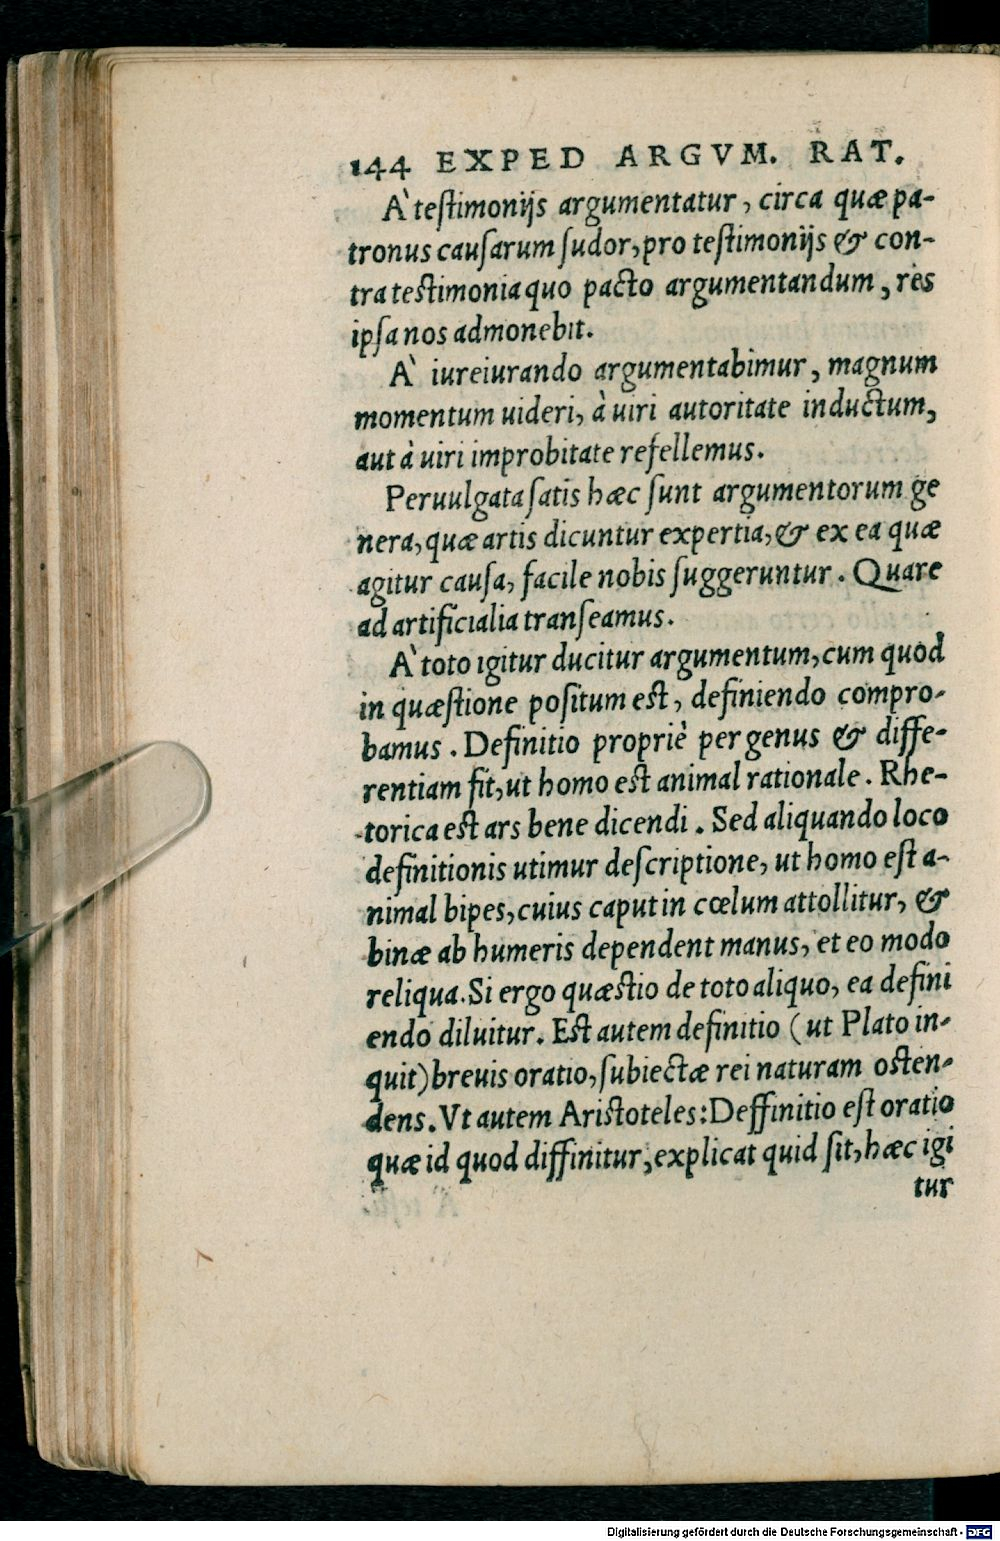 144 EXPED ARGVM. RAT.
À testimonijs argumentatur, circa quæ pa-
tronus causarum sudor, pro testimonijs & con-
tra testimonia quo pacto argumentandum, res
ipsa nos admonebit.
À iureiurando argumentabimur, magnum
momentum uideri, à uiri autoritate inductum,
aut à uiri improbitate refellemus.
Peruulgata satis hæc sunt argumentorum ge
nera, quæ artis dicuntur expertia, & ex ea quæ
agitur causa, facile nobis suggeruntur. Quare
ad artificialia transeamus.
À toto igitur ducitur argumentum, cum quod
in quæstione positum est, definiendo compro-
bamus. Definitio propriè per genus & diffe-
rentiam fit, ut homo est animal rationale. Rhe-
torica est ars bene dicendi. Sed aliquando loco
definitionis utimur descriptione, ut homo est a-
nimal bipes, cuius caput in cœlum attollitur, &
binæ ab humeris dependent manus, et eo modo
reliqua. Si ergo quæstio de toto aliquo, ea defini
endo diluitur. Est autem definitio (ut Plato in-
quit) breuis oratio, subiectæ rei naturam osten-
dens. Vt autem Aristoteles: Deffinitio est oratio
quæ id quod diffinitur, explicat quid sit, hæc igi
tur
Digitalisierung gefördert durch die Deutsche Forschungsgemeinschaft - DFG